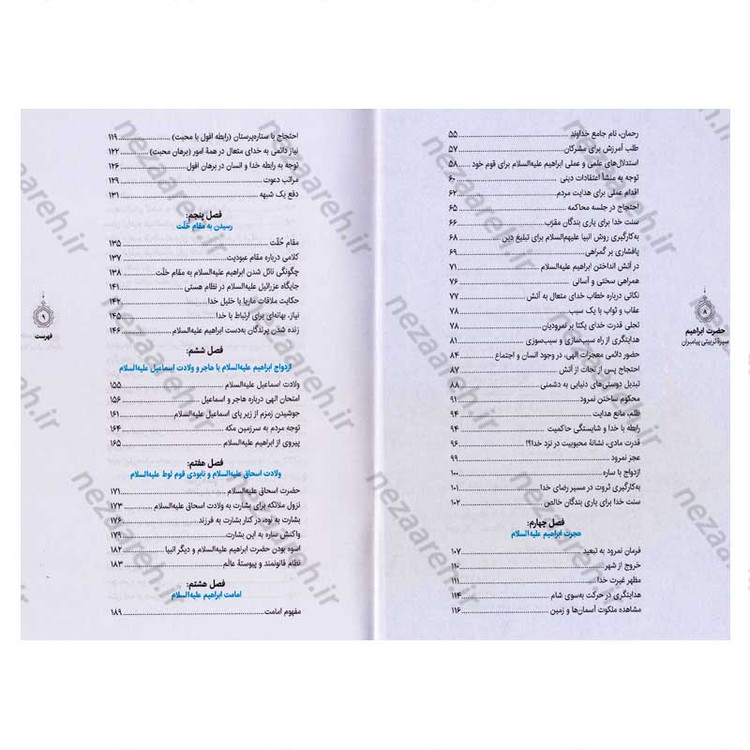 رحمان، نام جامع خداوند ... ۵۵
طلب آمرزش برای مشرکان ... ۵۷
استدلال‌های علمی و عملی ابراهیم علیه‌السلام برای قوم خود ... ۵۸
توجه به منشأ اعتقادات دینی ... ۶۰
اقدام عملی برای هدایت مردم ... ۶۲
احتجاج در جلسه محاکمه ... ۶۵
سنت خدا برای یاری بندگان مقرّب ... ۶۶
به‌کارگیری روش انبیا علیهم‌السلام برای تبلیغ دین ... ۶۸
پافشاری بر گمراهی ... ۶۹
در آتش انداختن ابراهیم علیه‌السلام ... ۷۱
همراهی سختی و آسانی ... ۷۶
نکاتی درباره خطاب خدای متعال به آتش ... ۷۷
عقاب و ثواب با یک سبب ... ۷۸
تجلی قدرت خدای یکتا بر نمرودیان ... ۷۸
هدایتگری از راه سبب‌سازی و سبب‌سوزی ... ۸۱
حضور دائمی معجزات الهی، در وجود انسان و اجتماع ... ۸۴
احتجاج پس از نجات از آتش ... ۸۷
تبدیل دوستی‌های دنیایی به دشمنی ... ۸۸
محکوم ساختن نمرود ... ۹۱
ظلم، مانع هدایت ... ۹۴
رابطه با خدا و شایستگی حاکمیت ... ۹۴
قدرت مادی، نشانهٔ محبوبیت در نزد خدا؟! ... ۹۶
عجز نمرود ... ۹۹
ازدواج با ساره ... ۱۰۰
به‌کارگیری ثروت در مسیر رضای خدا ... ۱۰۱
سنت خدا برای یاری بندگان خالص ... ۱۰۲
فصل چهارم:
هجرت ابراهیم علیه‌السلام
فرمان نمرود به تبعید ... ۱۰۷
خروج از شهر ... ۱۱۰
مظهر غیرت خدا ... ۱۱۱
هدایتگری در حرکت به‌سوی شام ... ۱۱۴
مشاهده ملکوت آسمان‌ها و زمین ... ۱۱۶
۸
حضرت ابراهیم
سیرهٔ تربیتی پیامبران
احتجاج با ستاره‌پرستان (رابطه افول با محبت) ... ۱۱۹
نیاز دائمی به خدای متعال در همهٔ امور (برهان محبت) ... ۱۲۲
توجه به رابطه خدا و انسان در برهان افول ... ۱۲۶
مراتب دعوت ... ۱۲۹
دفع یک شبهه ... ۱۳۱
فصل پنجم:
رسیدن به مقام خُلّت
مقام خُلّت ... ۱۳۵
کلامی درباره مقام عبودیت ... ۱۳۷
چگونگی نائل شدن ابراهیم علیه‌السلام به مقام خلّت ... ۱۳۸
جایگاه عزرائیل علیه‌السلام در نظام هستی ... ۱۴۱
حکایت ملاقات ماریا با خلیل خدا ... ۱۴۲
نیاز، بهانه‌ای برای ارتباط با خدا ... ۱۴۵
زنده شدن پرندگان به‌دست ابراهیم علیه‌السلام ... ۱۴۶
فصل ششم:
ازدواج ابراهیم علیه‌السلام با هاجر و ولادت اسماعیل علیه‌السلام
ولادت اسماعیل علیه‌السلام ... ۱۵۵
امتحان الهی درباره هاجر و اسماعیل ... ۱۵۶
جوشیدن زمزم از زیر پای اسماعیل علیه‌السلام ... ۱۶۱
توجه مردم به سرزمین مکه ... ۱۶۴
پیروی از ابراهیم علیه‌السلام ... ۱۶۵
فصل هفتم:
ولادت اسحاق علیه‌السلام و نابودی قوم لوط علیه‌السلام
حضرت اسحاق علیه‌السلام ... ۱۷۱
نزول ملائکه برای بشارت به ولادت اسحاق علیه‌السلام ... ۱۷۳
بشارت به نوه، در کنار بشارت به فرزند ... ۱۷۶
واکنش ساره به این بشارت ... ۱۷۹
اسوه بودن حضرت ابراهیم علیه‌السلام و دیگر انبیا ... ۱۸۲
نظام قانونمند و پیوستهٔ عالم ... ۱۸۳
فصل هشتم:
امامت ابراهیم علیه‌السلام
مفهوم امامت ... ۱۸۹
۹
فهرست
nezaareh.ir
nezaareh.ir
nezaareh.ir
nezaareh.ir
nezaareh.ir
nezaareh.ir